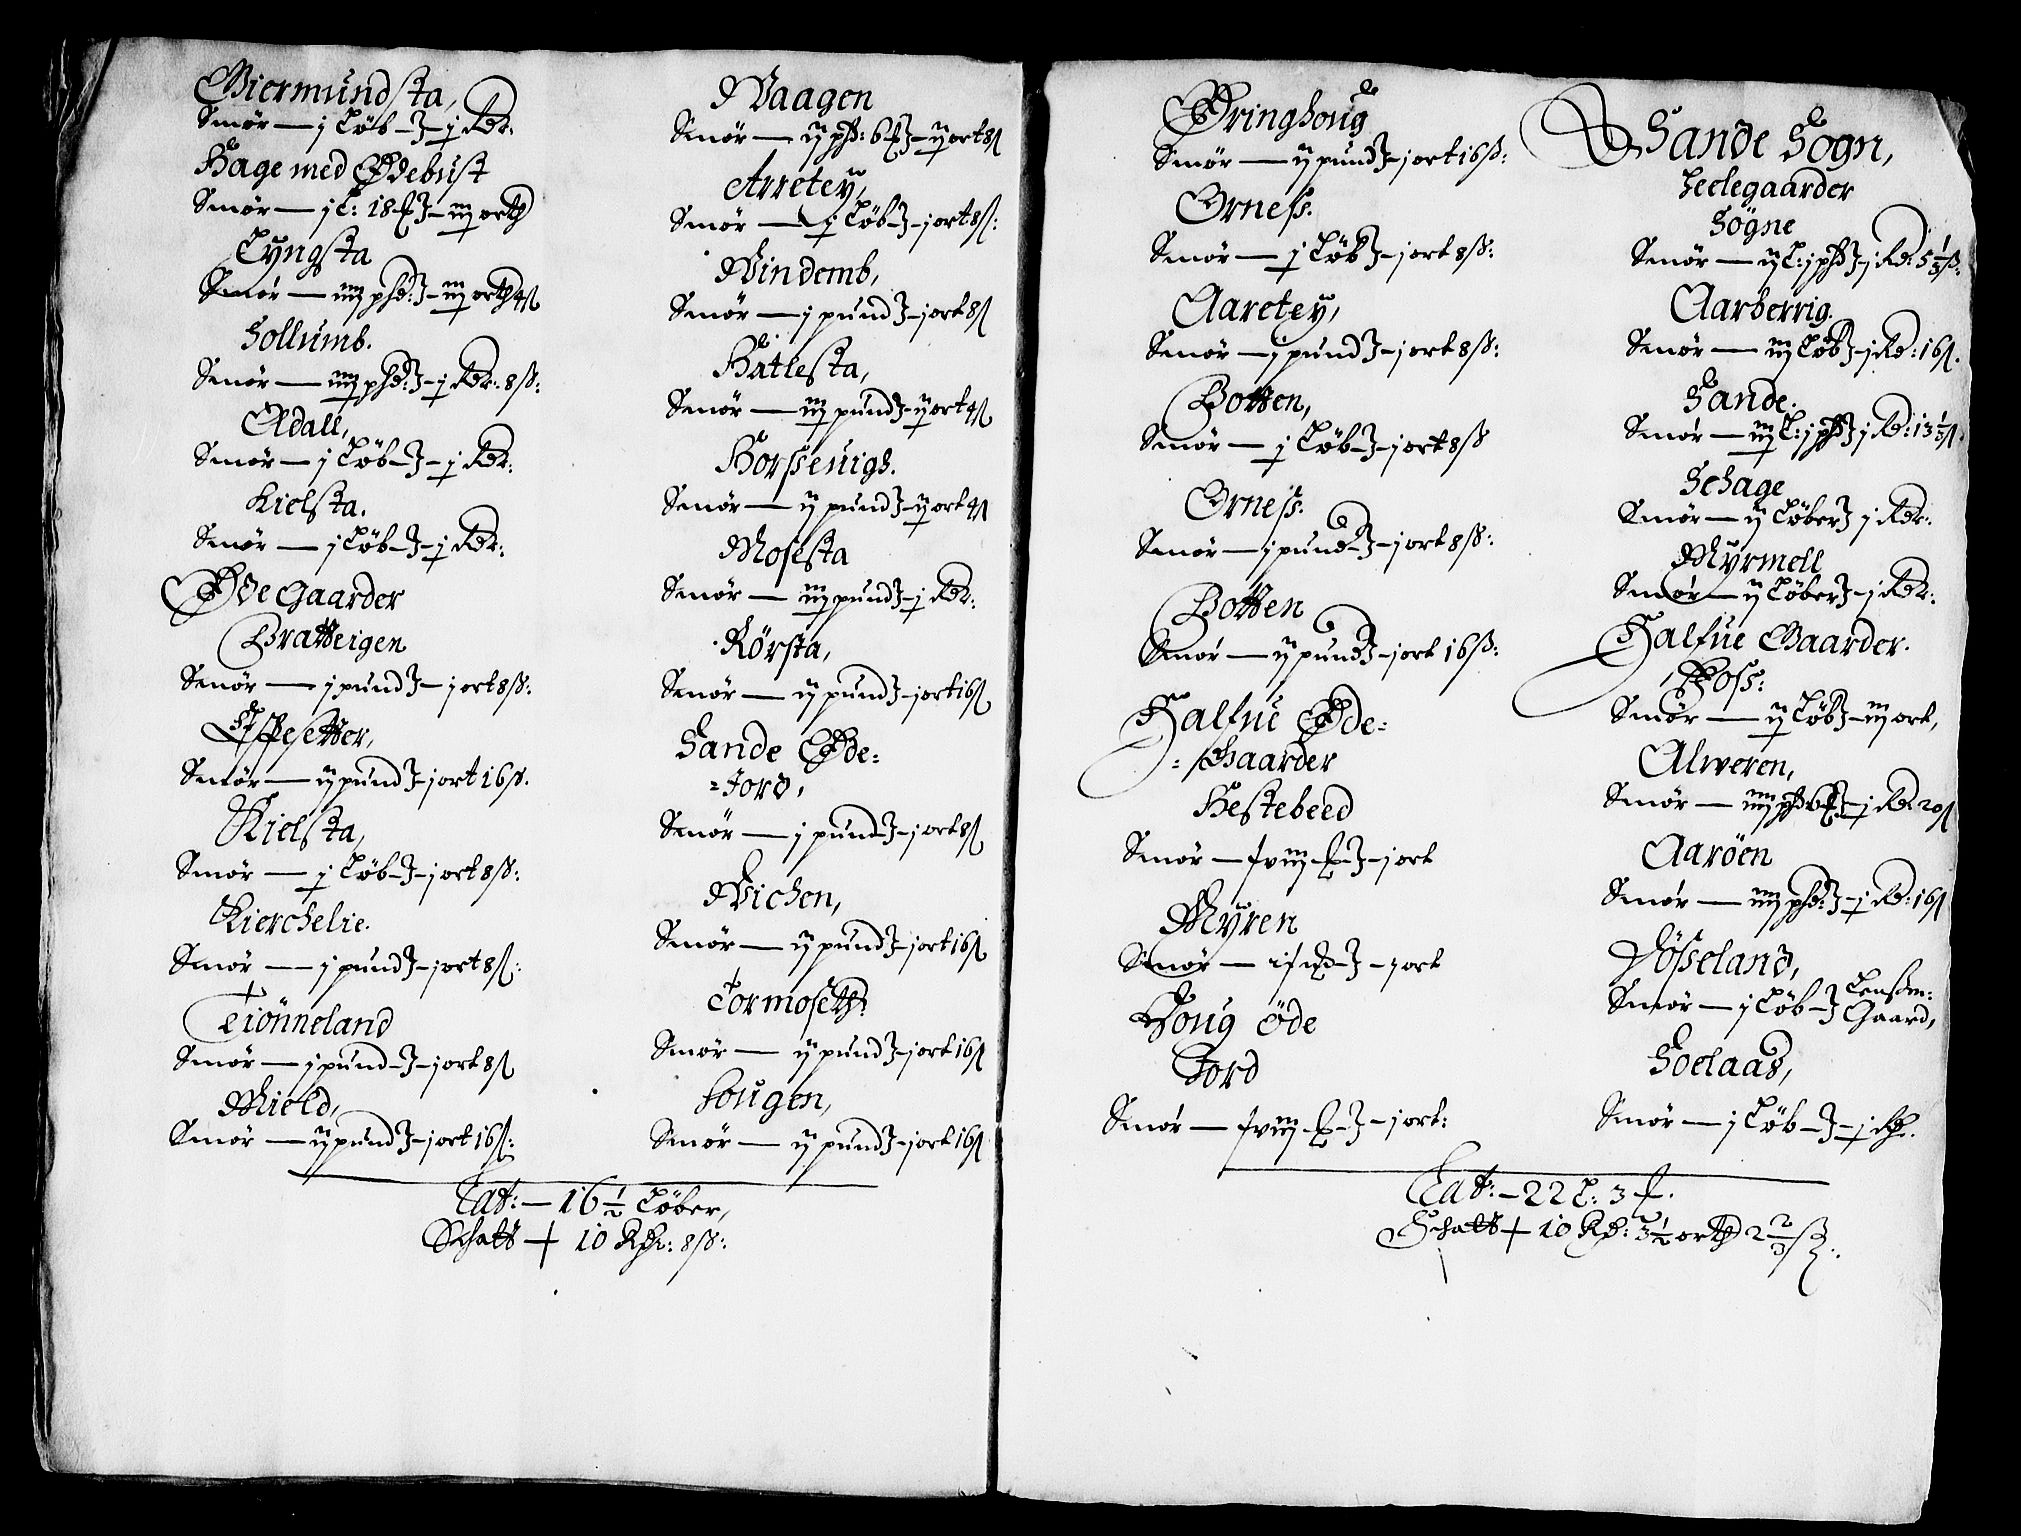 Giermundsta,
Smør — j Løb — J — j Rdr.
Hage med Ødebust
Smør — j L: 18 ℔ J — iij orth
Lyngsta
Smør — iiij phd: J — iij orth 4 ß
Sollumb.
Smør — iiij phd: J — j Rdr: 8 ß:
Aldall,
Smør — j Løb — J — j Rdr:
Kielsta.
Smør — j Løb — J — j Rdr:
Øde Gaarder
Bratteigen
Smør — j pund J — j ort 8 ß:
Espesetter,
Smør — ij pund J — j ort 16 ß.
Kielsta,
Smør — j Løb — J — j ort 8 ß:
Kierchelie.
Smør — j pund J — j ort 8 ß:
Tiönneland
Smør — j pund — J — j ort 8 ß
Mield,
Smør — ij pund J — j ort 16 ß:
Waagen
Smør — ij phd: 6 ℔ J — ij ort 8 ß
Arretey,
Smør — j Løb — J — j ort 8 ß:
Windemb,
Smør — j pund J — j ort 8 ß
Hatlesta,
Smør — iij pund J — ij ort 4 ß
Horsseuigh.
Smør — ij pund J — ij ort 4 ß
Mosesta
Smør — iiij pund J — j Rdr:
Rörsta,
Smør — ij pund J — j ort 16 ß
Sande Øde=
=Jord,
Smør — j pund J — j ort 8 ß
Wichen,
Smør — ij pund J — j ort 16 ß
Tormoseth
Smør — ij pund J — j ort 16 ß
Hougen,
Smør — ij pund J — j ort 16 ß
Lat: — 16 1/2 Løber,
Schatt + 10 Rdr: 8 ß:
Øringhoug
Smør — ij pund J — j ort 16 ß:
Orness.
Smør — j Løb J — j ort 8 ß:
Aaretey,
Smør — j pund J — j ort 8 ß:
Botten,
Smør — j Løb J — j ort 8 ß
Orness.
Smør — j pund — J — j ort 8 ß:
Botten
Smør — ij pund J — j ort 16 ß:
Halfue Øde=
=Gaarder
Hestebeed
Smør — xviij ℔ J — j ort
Myren
Smør — J — j ort
Houg öde
Jord
Smør — xviij ℔ — J — j ort:
Sande Sogn,
Heelegaarder
Sögne
Smør — ij L: j phd J — j Rd: 5 1/3 ß:
Aarberrig.
Smør — iij Løb J — j Rd: 16 ß.
Sande.
Smør — iij L: j phd J j Rd: 13 1/3 ß
Schage
Smør — ij Løber J j Rdr:
Myrmell
Smør — ij Løber J — j Rdr:
Halfue Gaarder.
Hoss:
Smør — ij Løb J — iij ort,
Alweren,
Smør — iiij phd 6 ℔ J — j Rd 20 ß
Aaröen
Smør — iiij phd: J — j Rd: 16 ß
Yösseland,
Smør — j Løb — J Lensm:
Gaard,
Soelaas,
Smør — j Løb — J — j Rdr.
Lat: — 22 L: 3 ℔.
Schatt + 10 Rdr: 3 1/2 orth 2 2/3 ß: